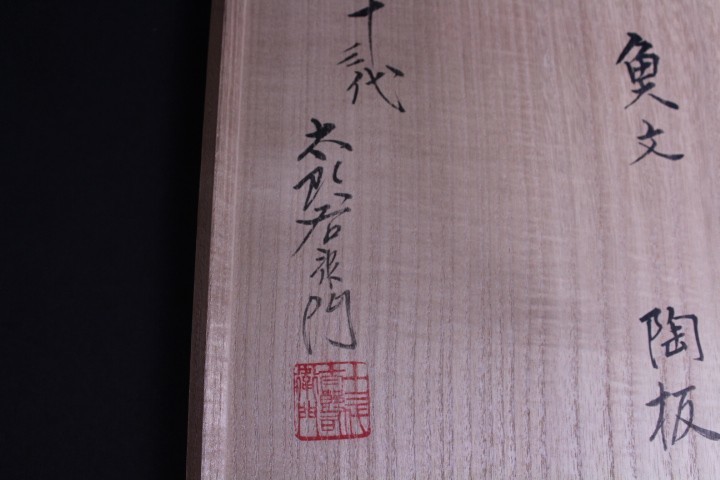 魚文
陶板
十三代
太郎右衛門